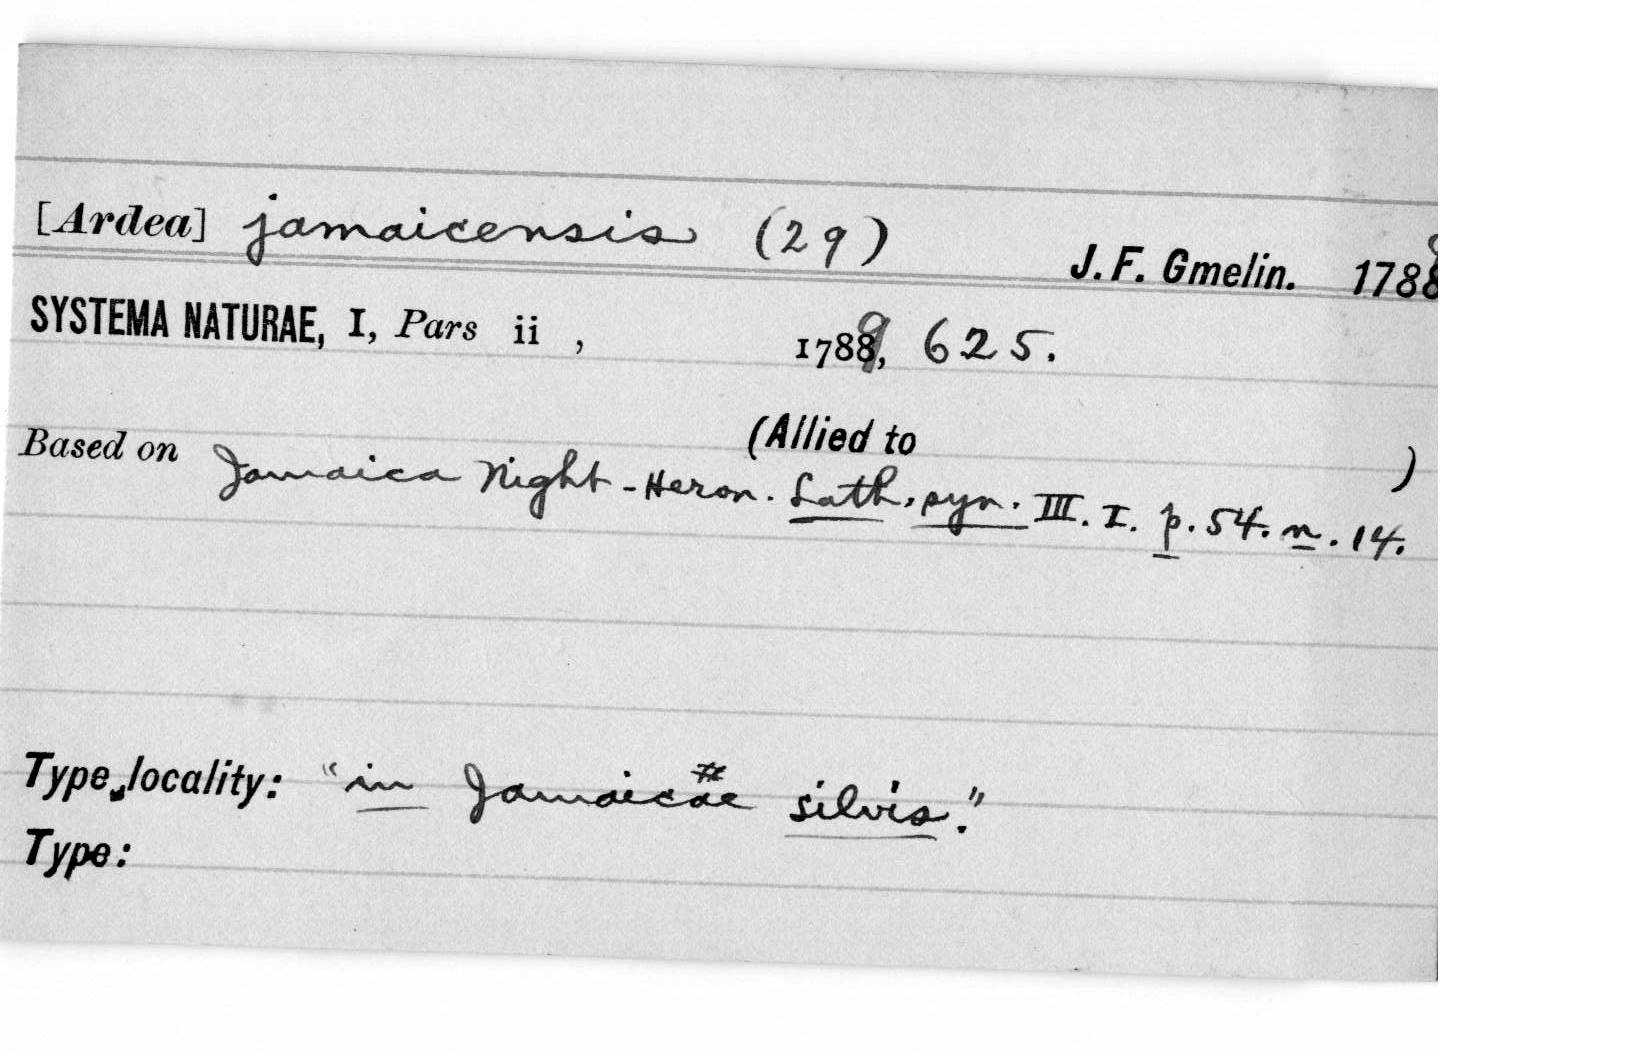 [Ardea] jamaicensis (29)
J. F. Gmelin. 1789
SYSTEMA NATURAE, I, Pars ii , 1789, 625.
(Allied to )
Based on Jamaica Night-Heron. Lath. syn. III. I. p. 54. n. 14.
Type locality: "in Jamaicae silvis."
Type: